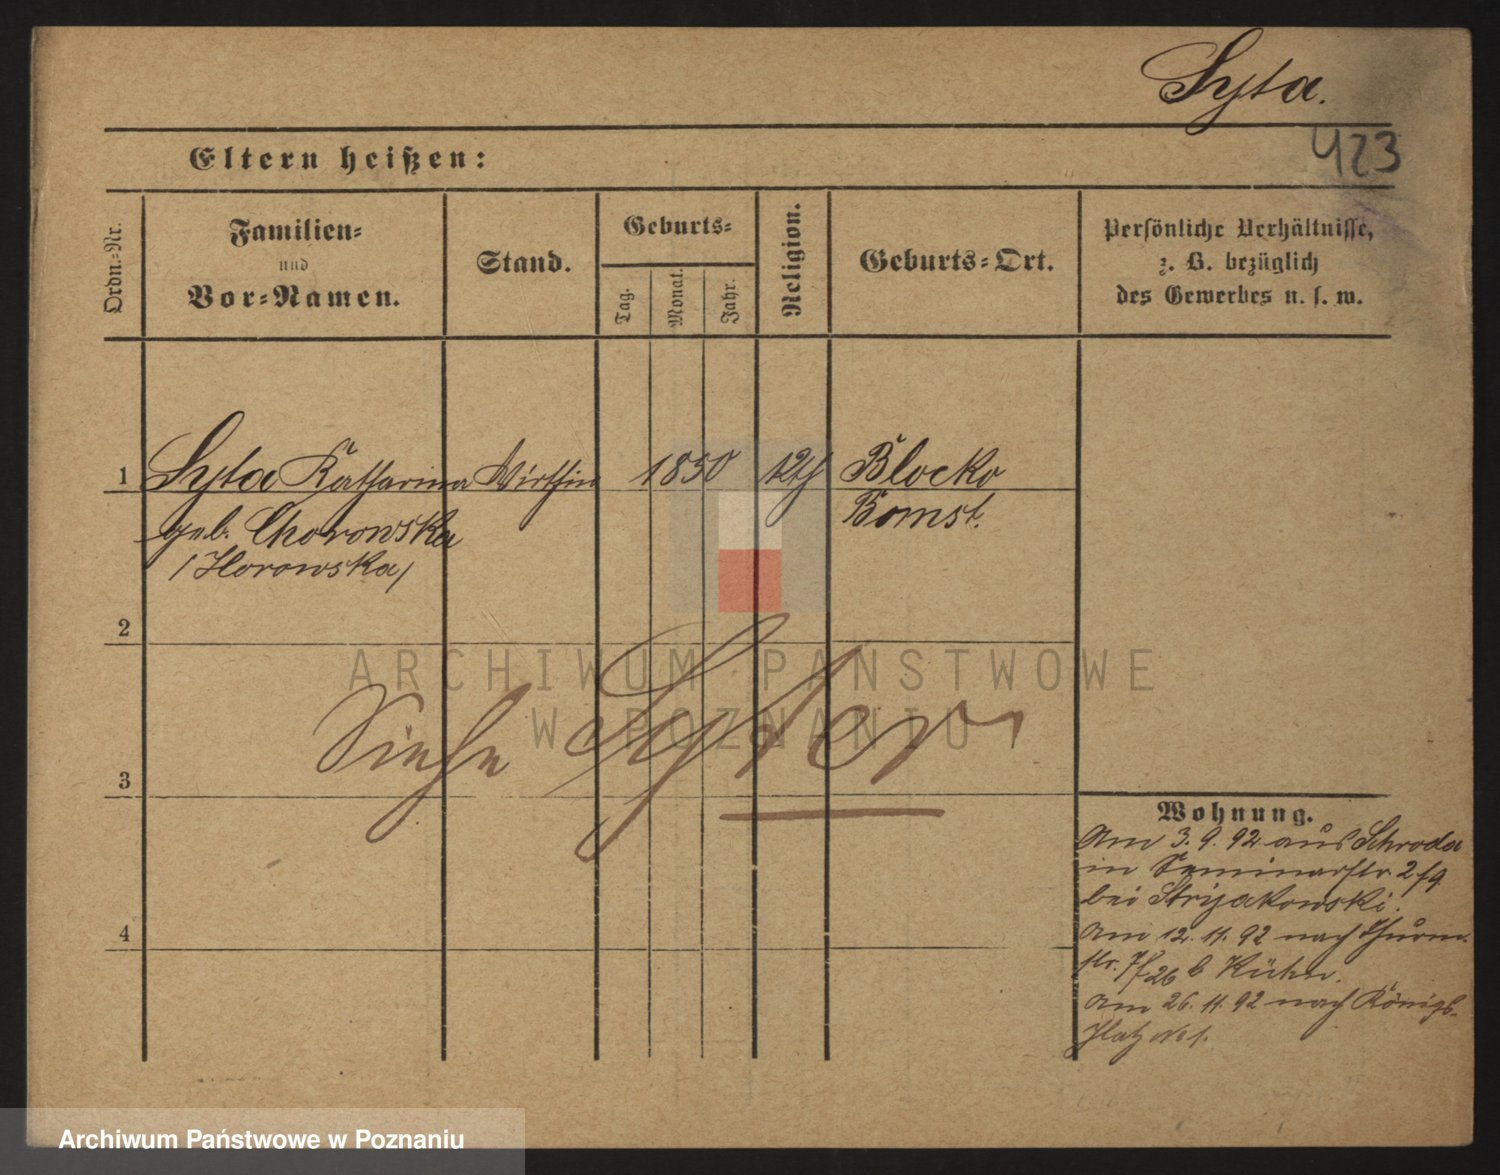 Syta.
423
Eltern heißen:
Ordn.-Nr.
Familien-
und
Vor-Namen.
Stand.
Geburts-
Tag.
Monat.
Jahr.
Religion.
Geburts-Ort.
Persönliche Verhältnisse,
z. B. bezüglich
des Gewerbes u. s. w.
1 Syta Katharina Wirthin 1850 kth Blocko
geb. Chorowska Bomst.
/Horowska/
2
ARCHIWUM PAŃSTWOWE
W POZNANIU
Siehe Syter
3
Wohnung.
Am 3. 9. 92. aus Schroda
in Seminarstr. 2/9
bei Strijakowski.
4
Am 12. 11. 92 nach Thurm-
str. 7/26 b Kühn.
Am 26. 11. 92 nach Königs-
platz No 1.
Archiwum Państwowe w Poznaniu